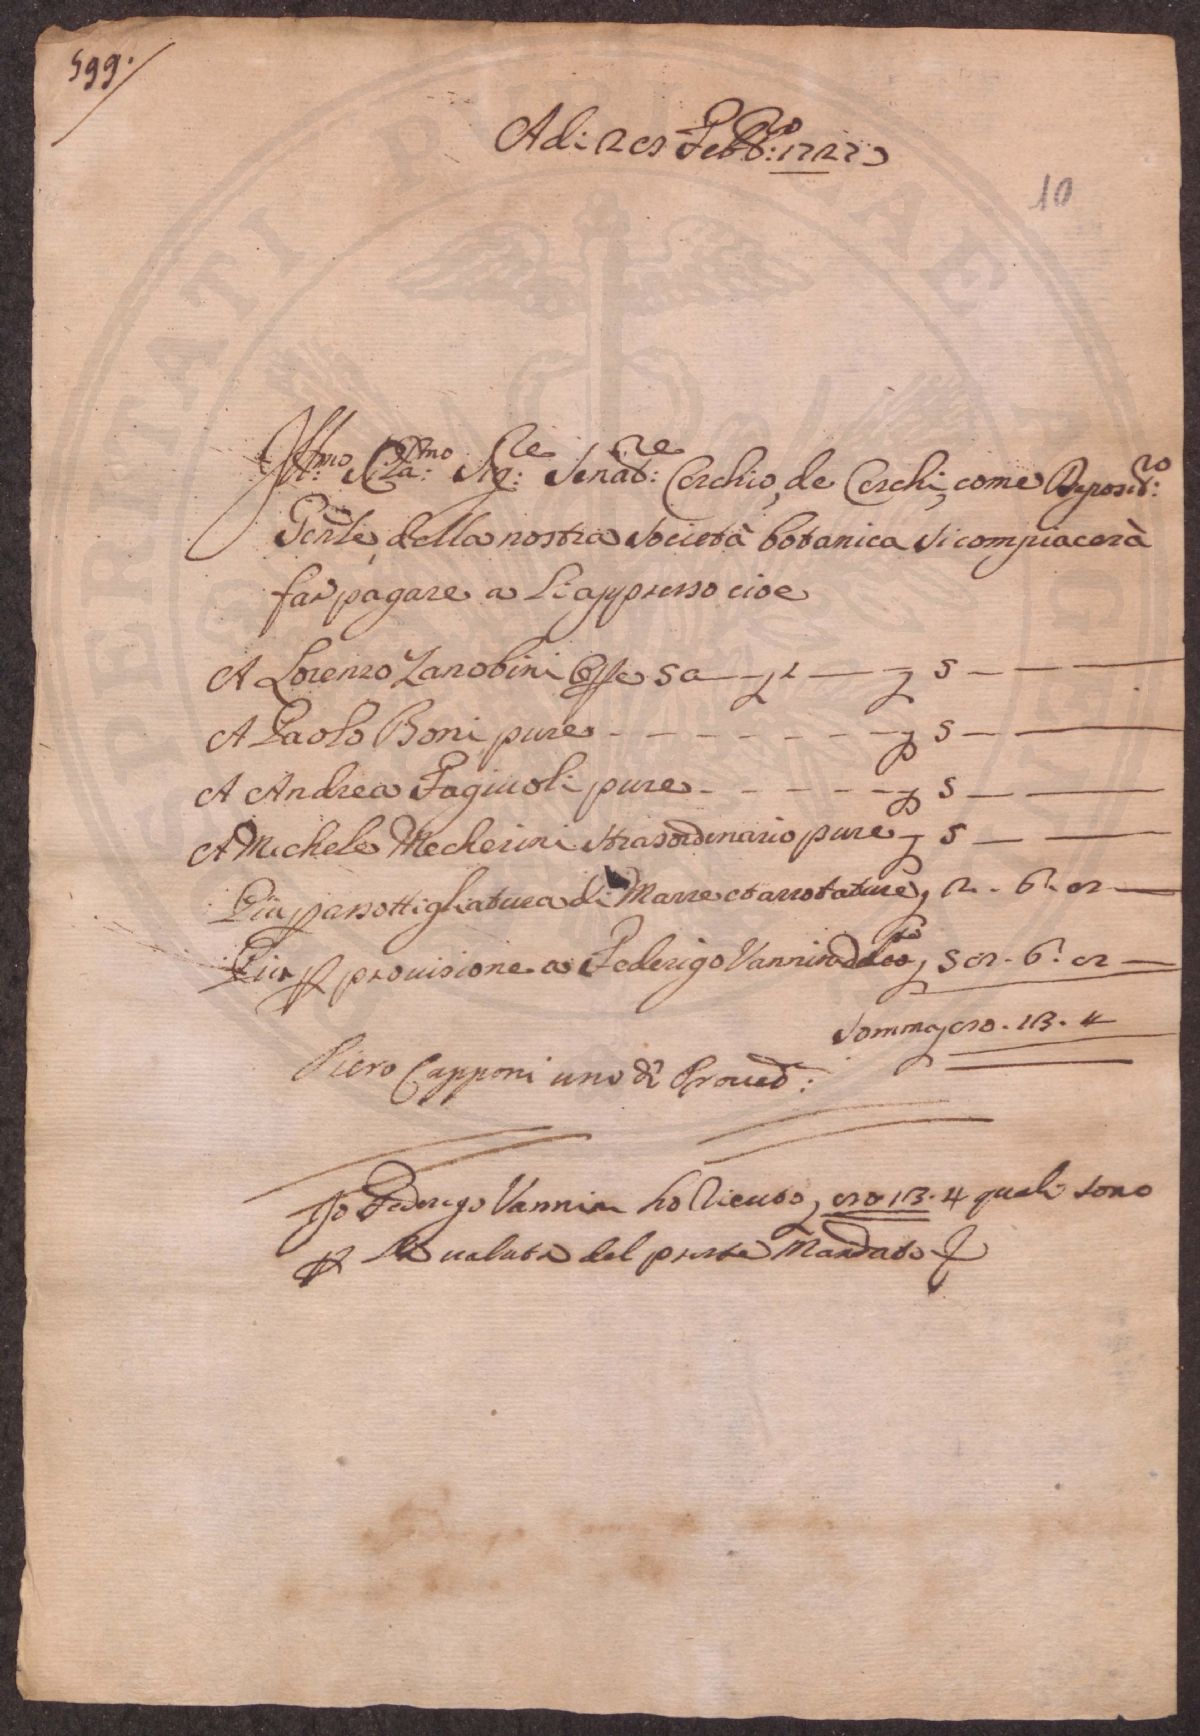 599.
Adi: 28 Febb:ro 1727
10
Ill:mo Cla:mo Sig:re Senat:re Cerchio, de Cerchi, come Deposit:ro
Gen.le della nostra Società botanica si compiacerà
far pagare a li appresso cioe
A Lorenzo Zanobini 5
A Paolo Boni pure 5
A Andrea Fagiuoli pure 5
A Michele Mecherini straordinario pure 5
Piu assottigliatura di Marre et arrotature 2 - 6. 8
Piu p provisione a Federigo Vannini 58 - 6. 8
Somma 80 - 13 - 4
Piero Capponi uno de Proved:
Io Federigo Vannini ho riceuto 80 13 - 4 quali sono
p la valuta del pnte Mandato